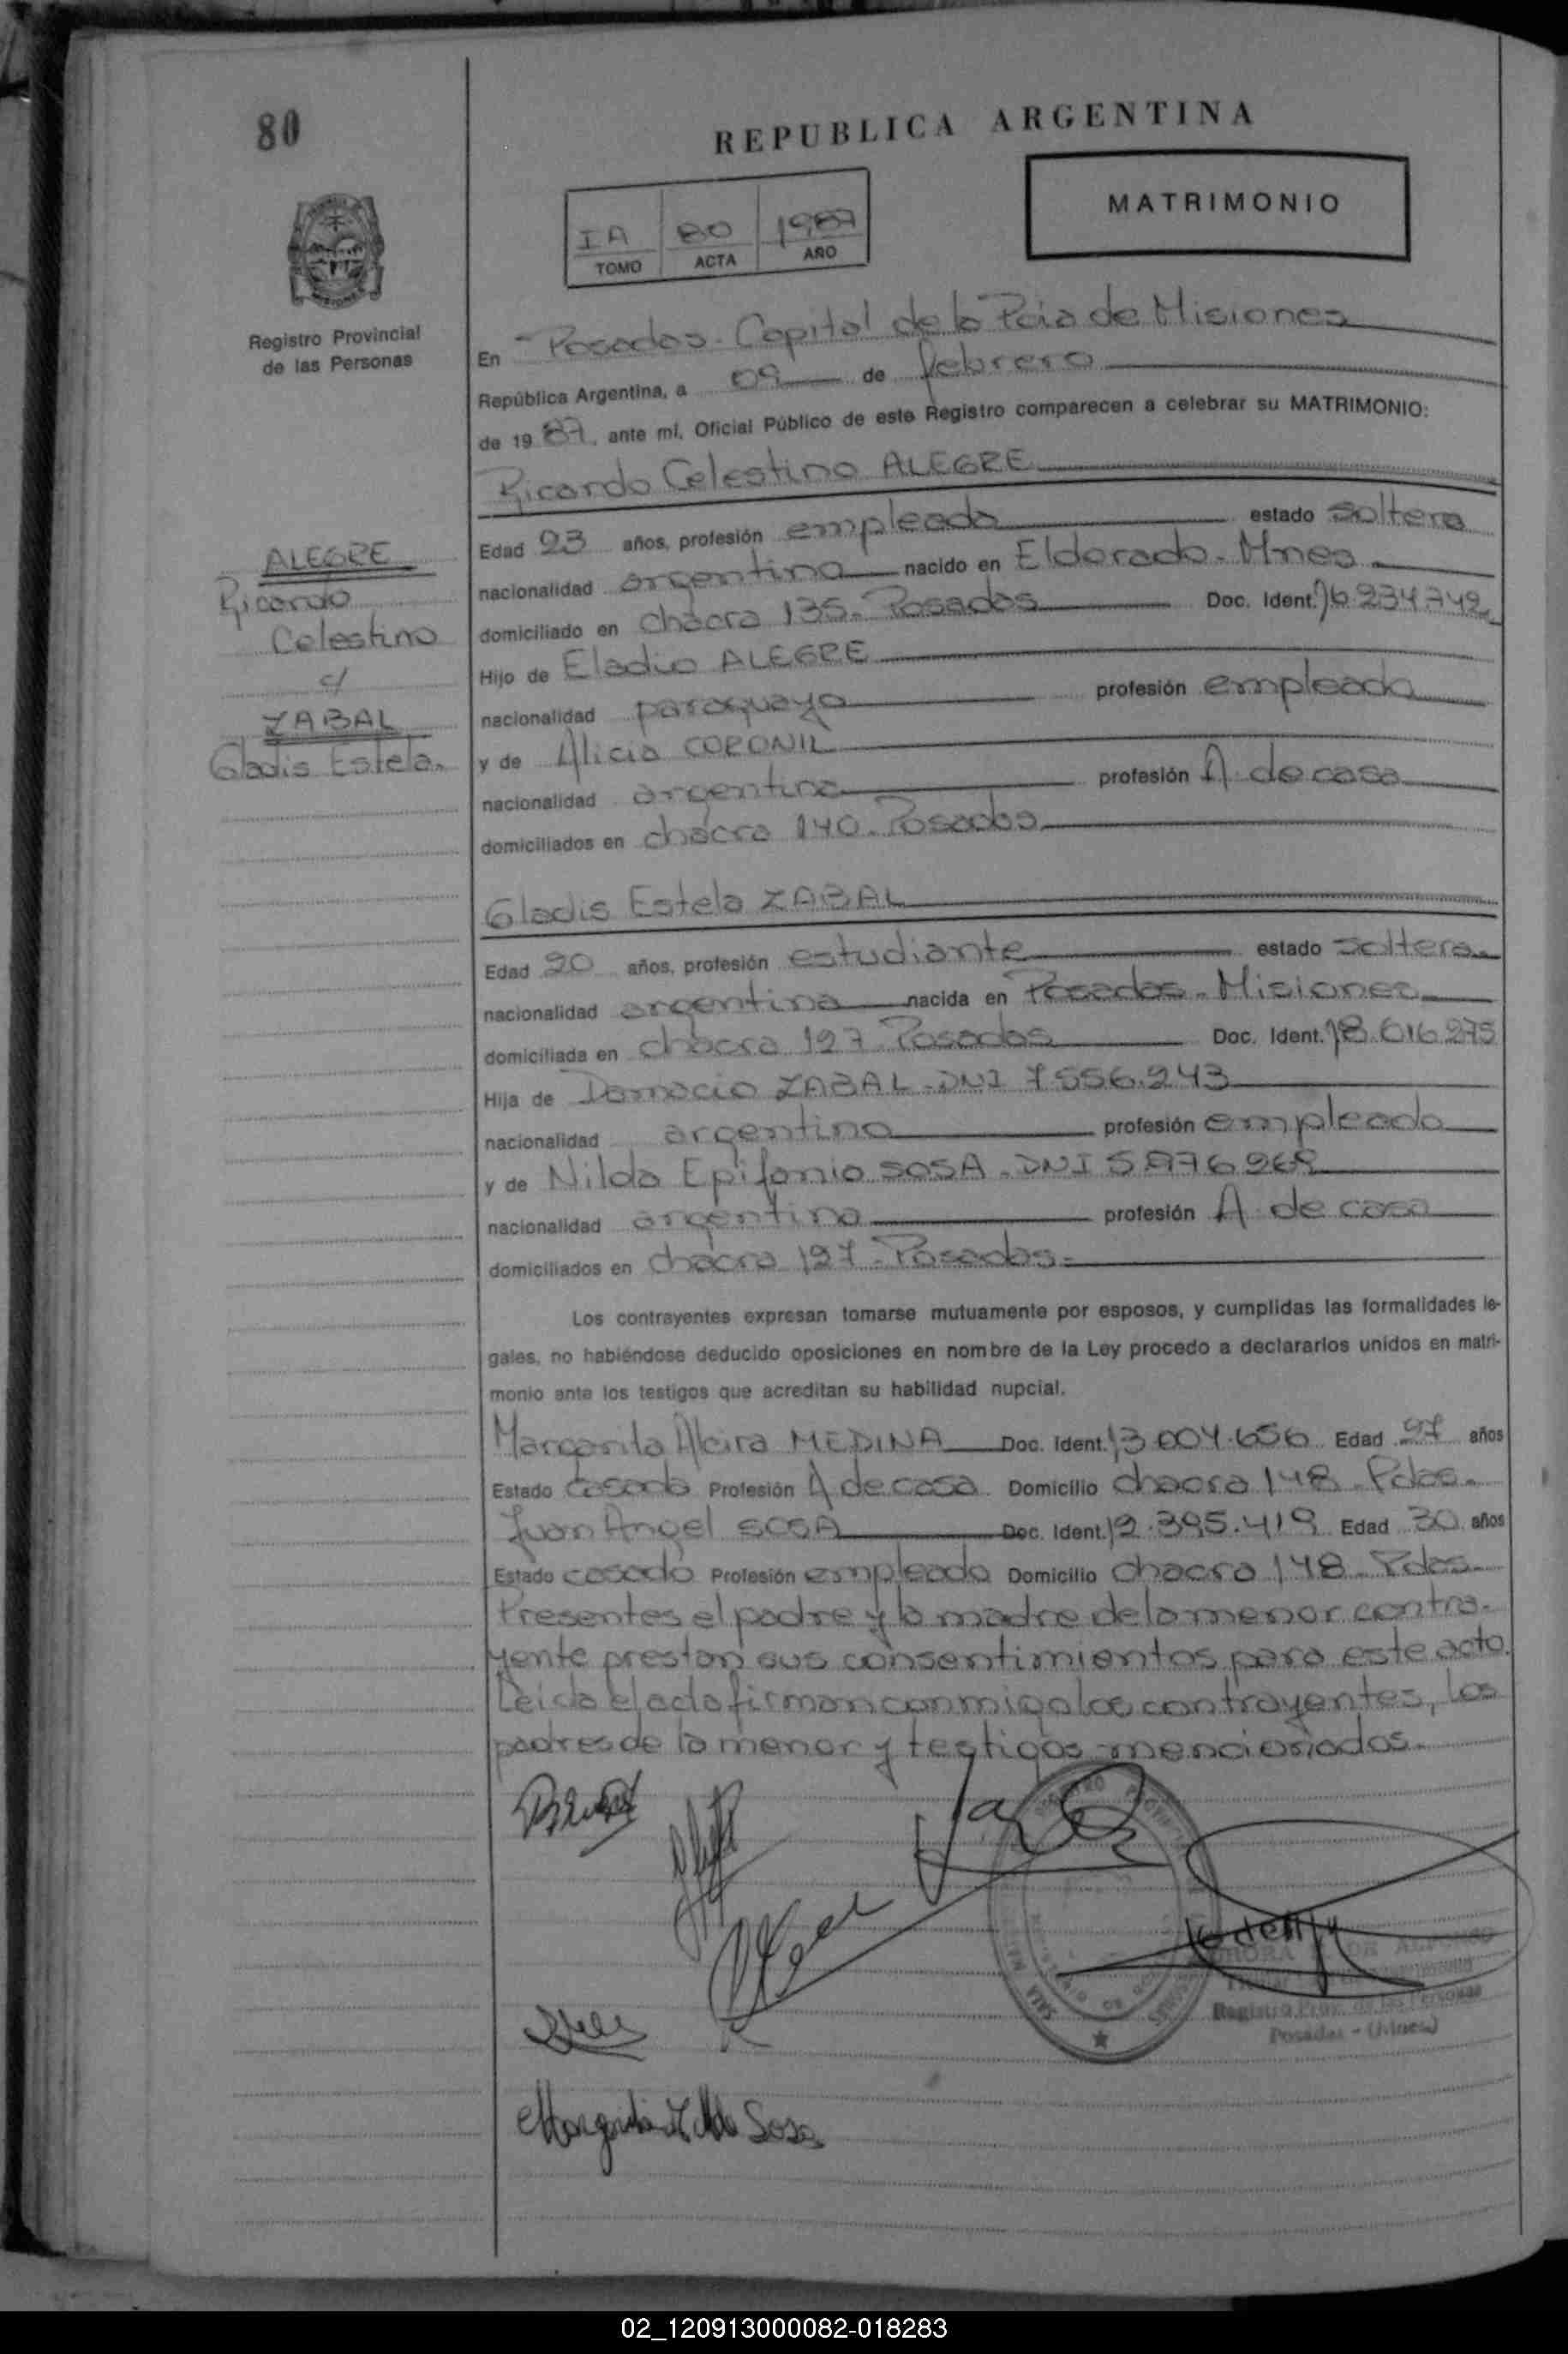 80
REPUBLICA ARGENTINA
MATRIMONIO
IA 80 1987
TOMO ACTA AÑO
Registro Provincial
de las Personas
En Posadas. Capital de la Pcia de Misiones
República Argentina, a 09 de febrero
de 1987, ante mí, Oficial Público de este Registro comparecen a celebrar su MATRIMONIO:
Ricardo Celestino ALEGRE
Edad 23 años, profesión empleado estado soltero
nacionalidad argentino nacido en Eldorado - Mnes
domiciliado en chacra 135. Posadas Doc. Ident. 16.234.742
Hijo de Eladio ALEGRE
nacionalidad paraguayo profesión empleado
y de Alicia CORONIL
nacionalidad argentina profesión A. de casa
domiciliados en chacra 140. Posadas
ALEGRE
Ricardo
Celestino
c/
ZABAL
Gladis Estela.
Gladis Estela ZABAL
Edad 20 años, profesión estudiante estado soltera
nacionalidad argentina nacida en Posadas - Misiones
domiciliada en chacra 127. Posadas Doc. Ident. 18.616.275
Hija de Damacio ZABAL - DNI 7.556.243
nacionalidad argentino profesión empleado
y de Nilda Epifania SOSA - DNI
nacionalidad argentina profesión A. de casa
domiciliados en chacra 127 - Posadas.
Los contrayentes expresan tomarse mutuamente por esposos, y cumplidas las formalidades le-
gales, no habiéndose deducido oposiciones en nombre de la Ley procedo a declararlos unidos en matri-
monio ante los testigos que acreditan su habilidad nupcial.
Margarita Alcira MEDINA Doc. Ident. 13.004.656 Edad 27 años
Estado casada Profesión A de casa Domicilio chacra 148 - Pdas.
Juan Angel SOSA Doc. Ident. 12.395.419 Edad 30 años
Estado casado Profesión empleado Domicilio chacra 148 - Pdas.
Presentes el padre y la madre de la menor contra-
yente prestan sus consentimientos para este acto.
Leida el acta firman conmigo los contrayentes, los
padres de la menor y testigos mencionados.
Registro Prov. de las Personas
Posadas - (Mnes.)
Margarita Sosa
02_120913000082-018283